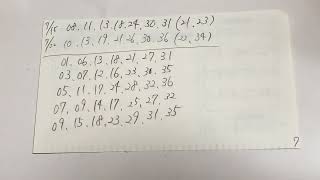 7/15 08.11.13.18.24.30.31 (21.23)
7/22 10.13.19.21.26.30.36 (22.34)
01.06.13.18.21.27.31
03.07.12.16.23.30.35
05.11.17.24.28.32.36
07.09.14.17.25.27.32
09.15.18.23.29.31.35
7